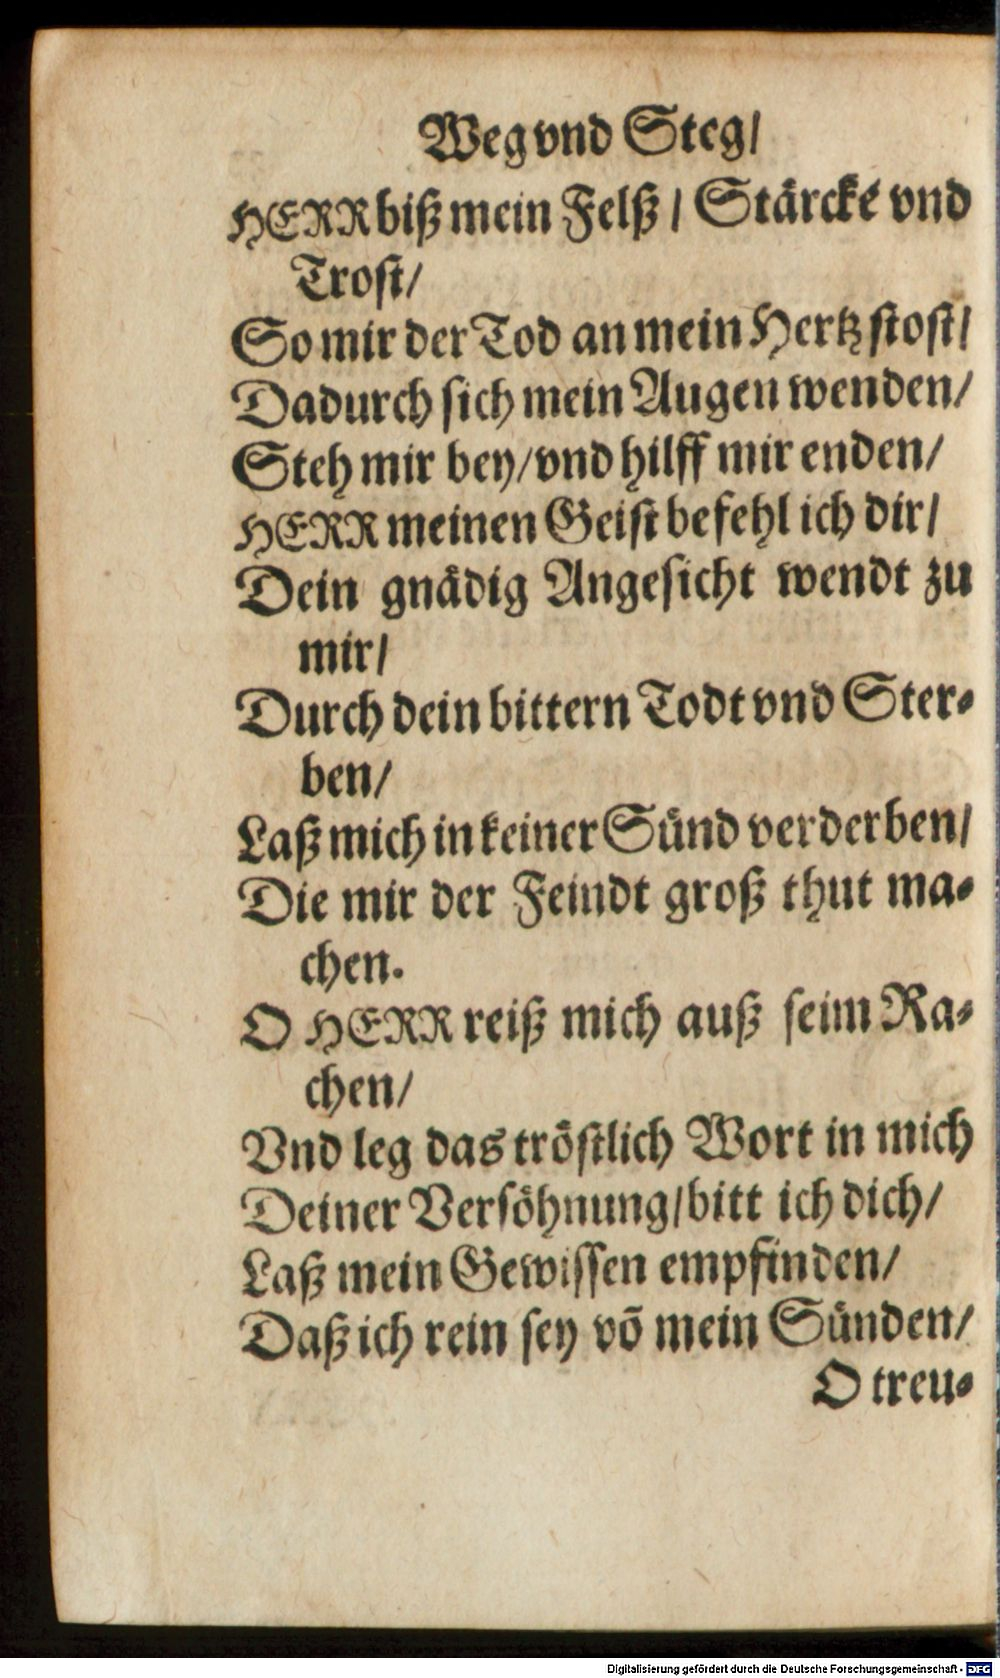 Weg vnd Steg/
HERR biß mein Felß / Stärcke vnd
Trost/
So mir der Tod an mein Hertz stost/
Dadurch sich mein Augen wenden/
Steh mir bey/ vnd hilff mir enden/
HERR meinen Geist befehl ich dir/
Dein gnädig Angesicht wendt zu
mir/
Durch dein bittern Todt vnd Ster-
ben/
Laß mich in keiner Sünd verderben/
Die mir der Feindt groß thut ma-
chen.
O HERR reiß mich auß seim Ra-
chen/
Vnd leg das tröstlich Wort in mich
Deiner Versöhnung/ bitt ich dich/
Laß mein Gewissen empfinden/
Daß ich rein sey võ mein Sünden/
O treu-
Digitalisierung gefördert durch die Deutsche Forschungsgemeinschaft - DFG